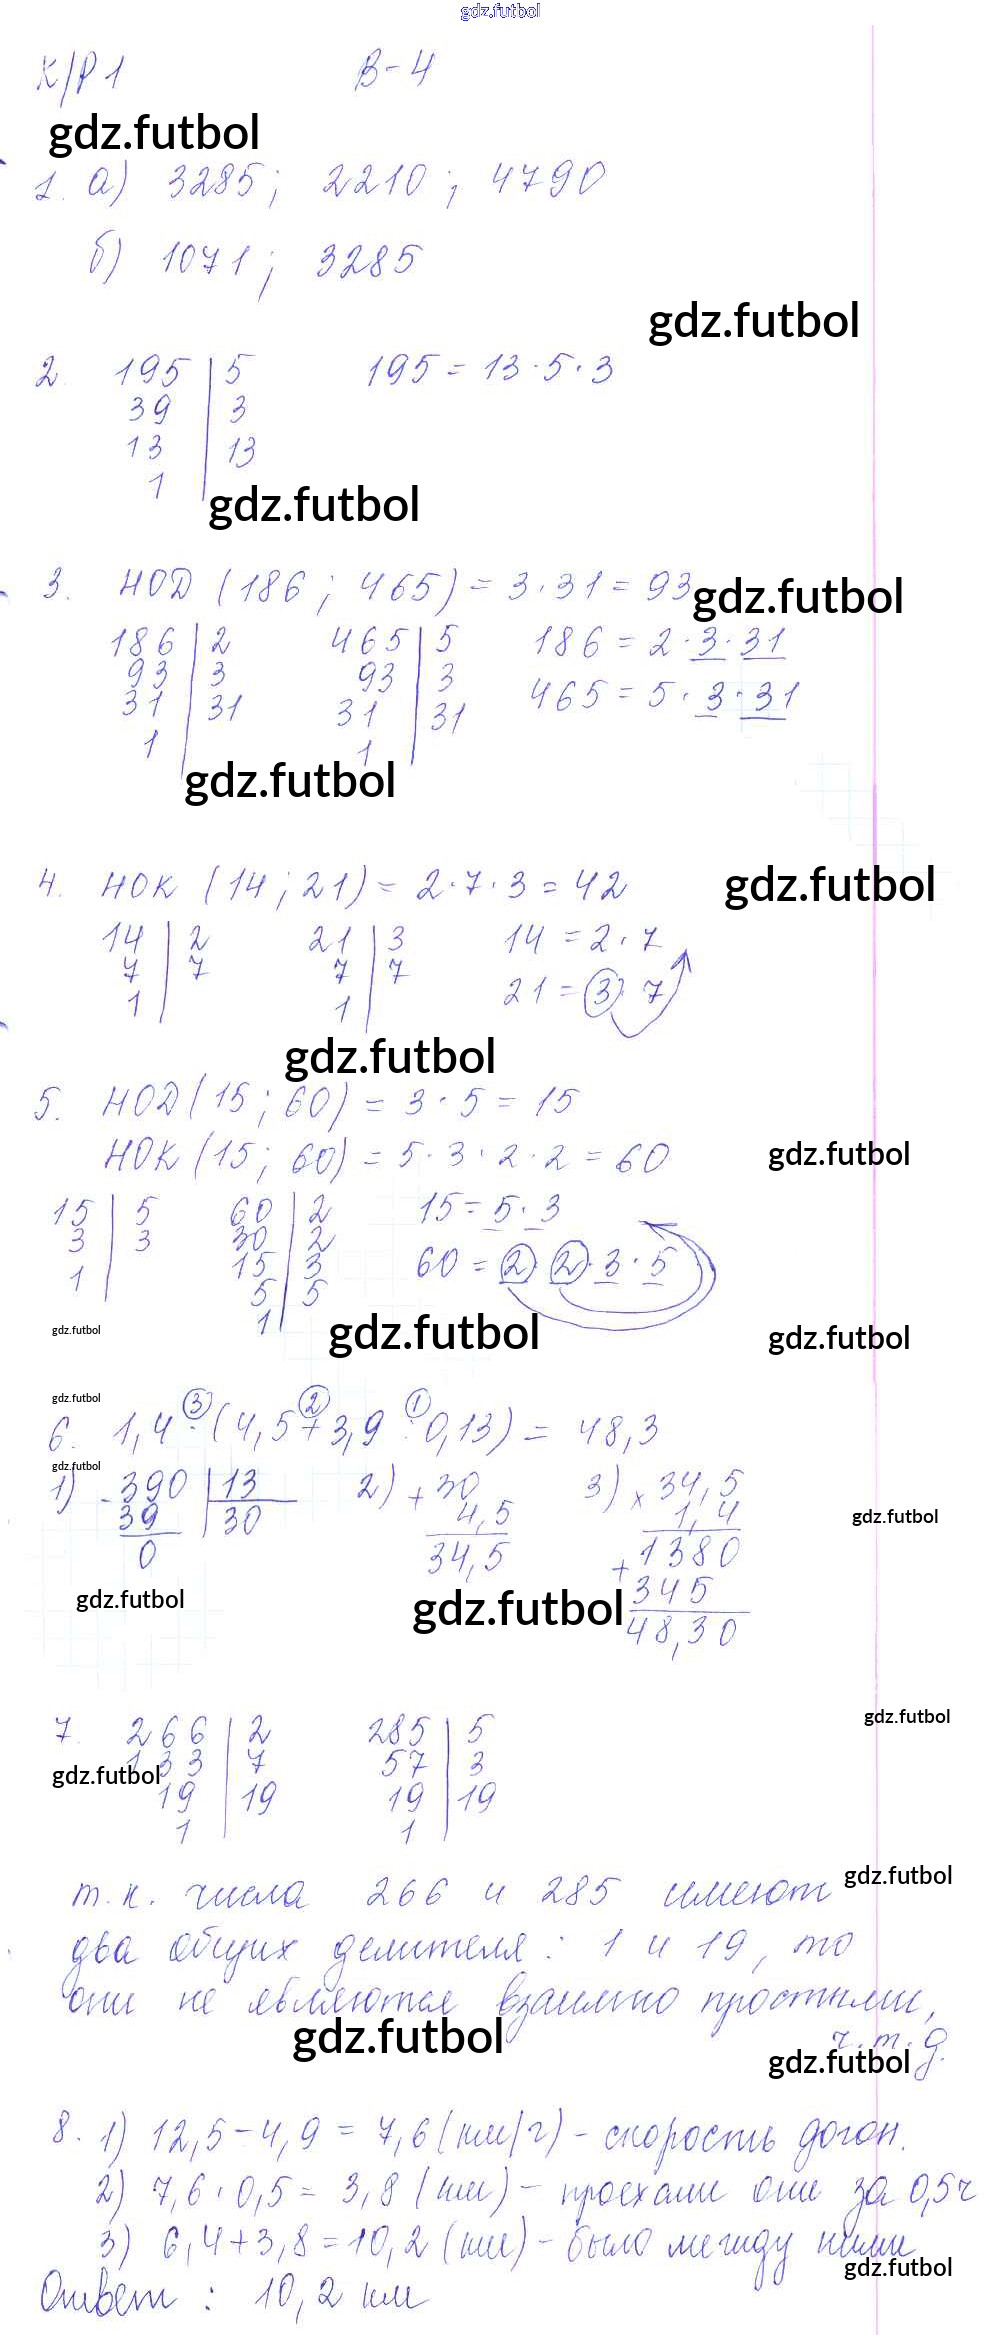 gdz.futbol
К/Р 1 В-4
gdz.futbol
1. а) 3285; 2210; 4790
б) 1071; 3285
gdz.futbol
2. 195 | 5 195 = 13 · 5 · 3
39 | 3
13 | 13
1
gdz.futbol
3. НОД (186; 465) = 3 · 31 = 93
gdz.futbol
186 | 2 465 | 5 186 = 2 · 3 · 31
93 | 3 93 | 3 465 = 5 · 3 · 31
31 | 31 31 | 31
1 1
gdz.futbol
4. НОК (14; 21) = 2 · 7 · 3 = 42
gdz.futbol
14 | 2 21 | 3 14 = 2 · 7
7 | 7 7 | 7 21 = 3 · 7
1 1
gdz.futbol
5. НОД (15; 60) = 3 · 5 = 15
НОК (15; 60) = 5 · 3 · 2 · 2 = 60
gdz.futbol
15 | 5 60 | 2 15 = 5 · 3
3 | 3 30 | 2
1 15 | 3 60 = 2 · 2 · 3 · 5
5 | 5
1
gdz.futbol gdz.futbol gdz.futbol
gdz.futbol 3 2 1
6. 1,4 · (4,5 + 3,9 : 0,13) = 48,3
gdz.futbol
1) - 390 | 13 2) + 30 3) × 34,5
39 | 30 4,5 1,4
0 34,5 + 1380
gdz.futbol
345
gdz.futbol gdz.futbol
48,30
7. 266 | 2 285 | 5
gdz.futbol
133 | 7 57 | 3
gdz.futbol
19 | 19 19 | 19
1 1
gdz.futbol
т.к. числа 266 и 285 имеют
два общих делителя: 1 и 19, то
они не являются взаимно простыми,
gdz.futbol
ч.т.д.
gdz.futbol
8. 1) 12,5 - 4,9 = 7,6 (км/ч) - скорость догон.
2) 7,6 · 0,5 = 3,8 (км) - проехали они за 0,5 ч
3) 6,4 + 3,8 = 10,2 (км) - было между ними
gdz.futbol
Ответ: 10,2 км